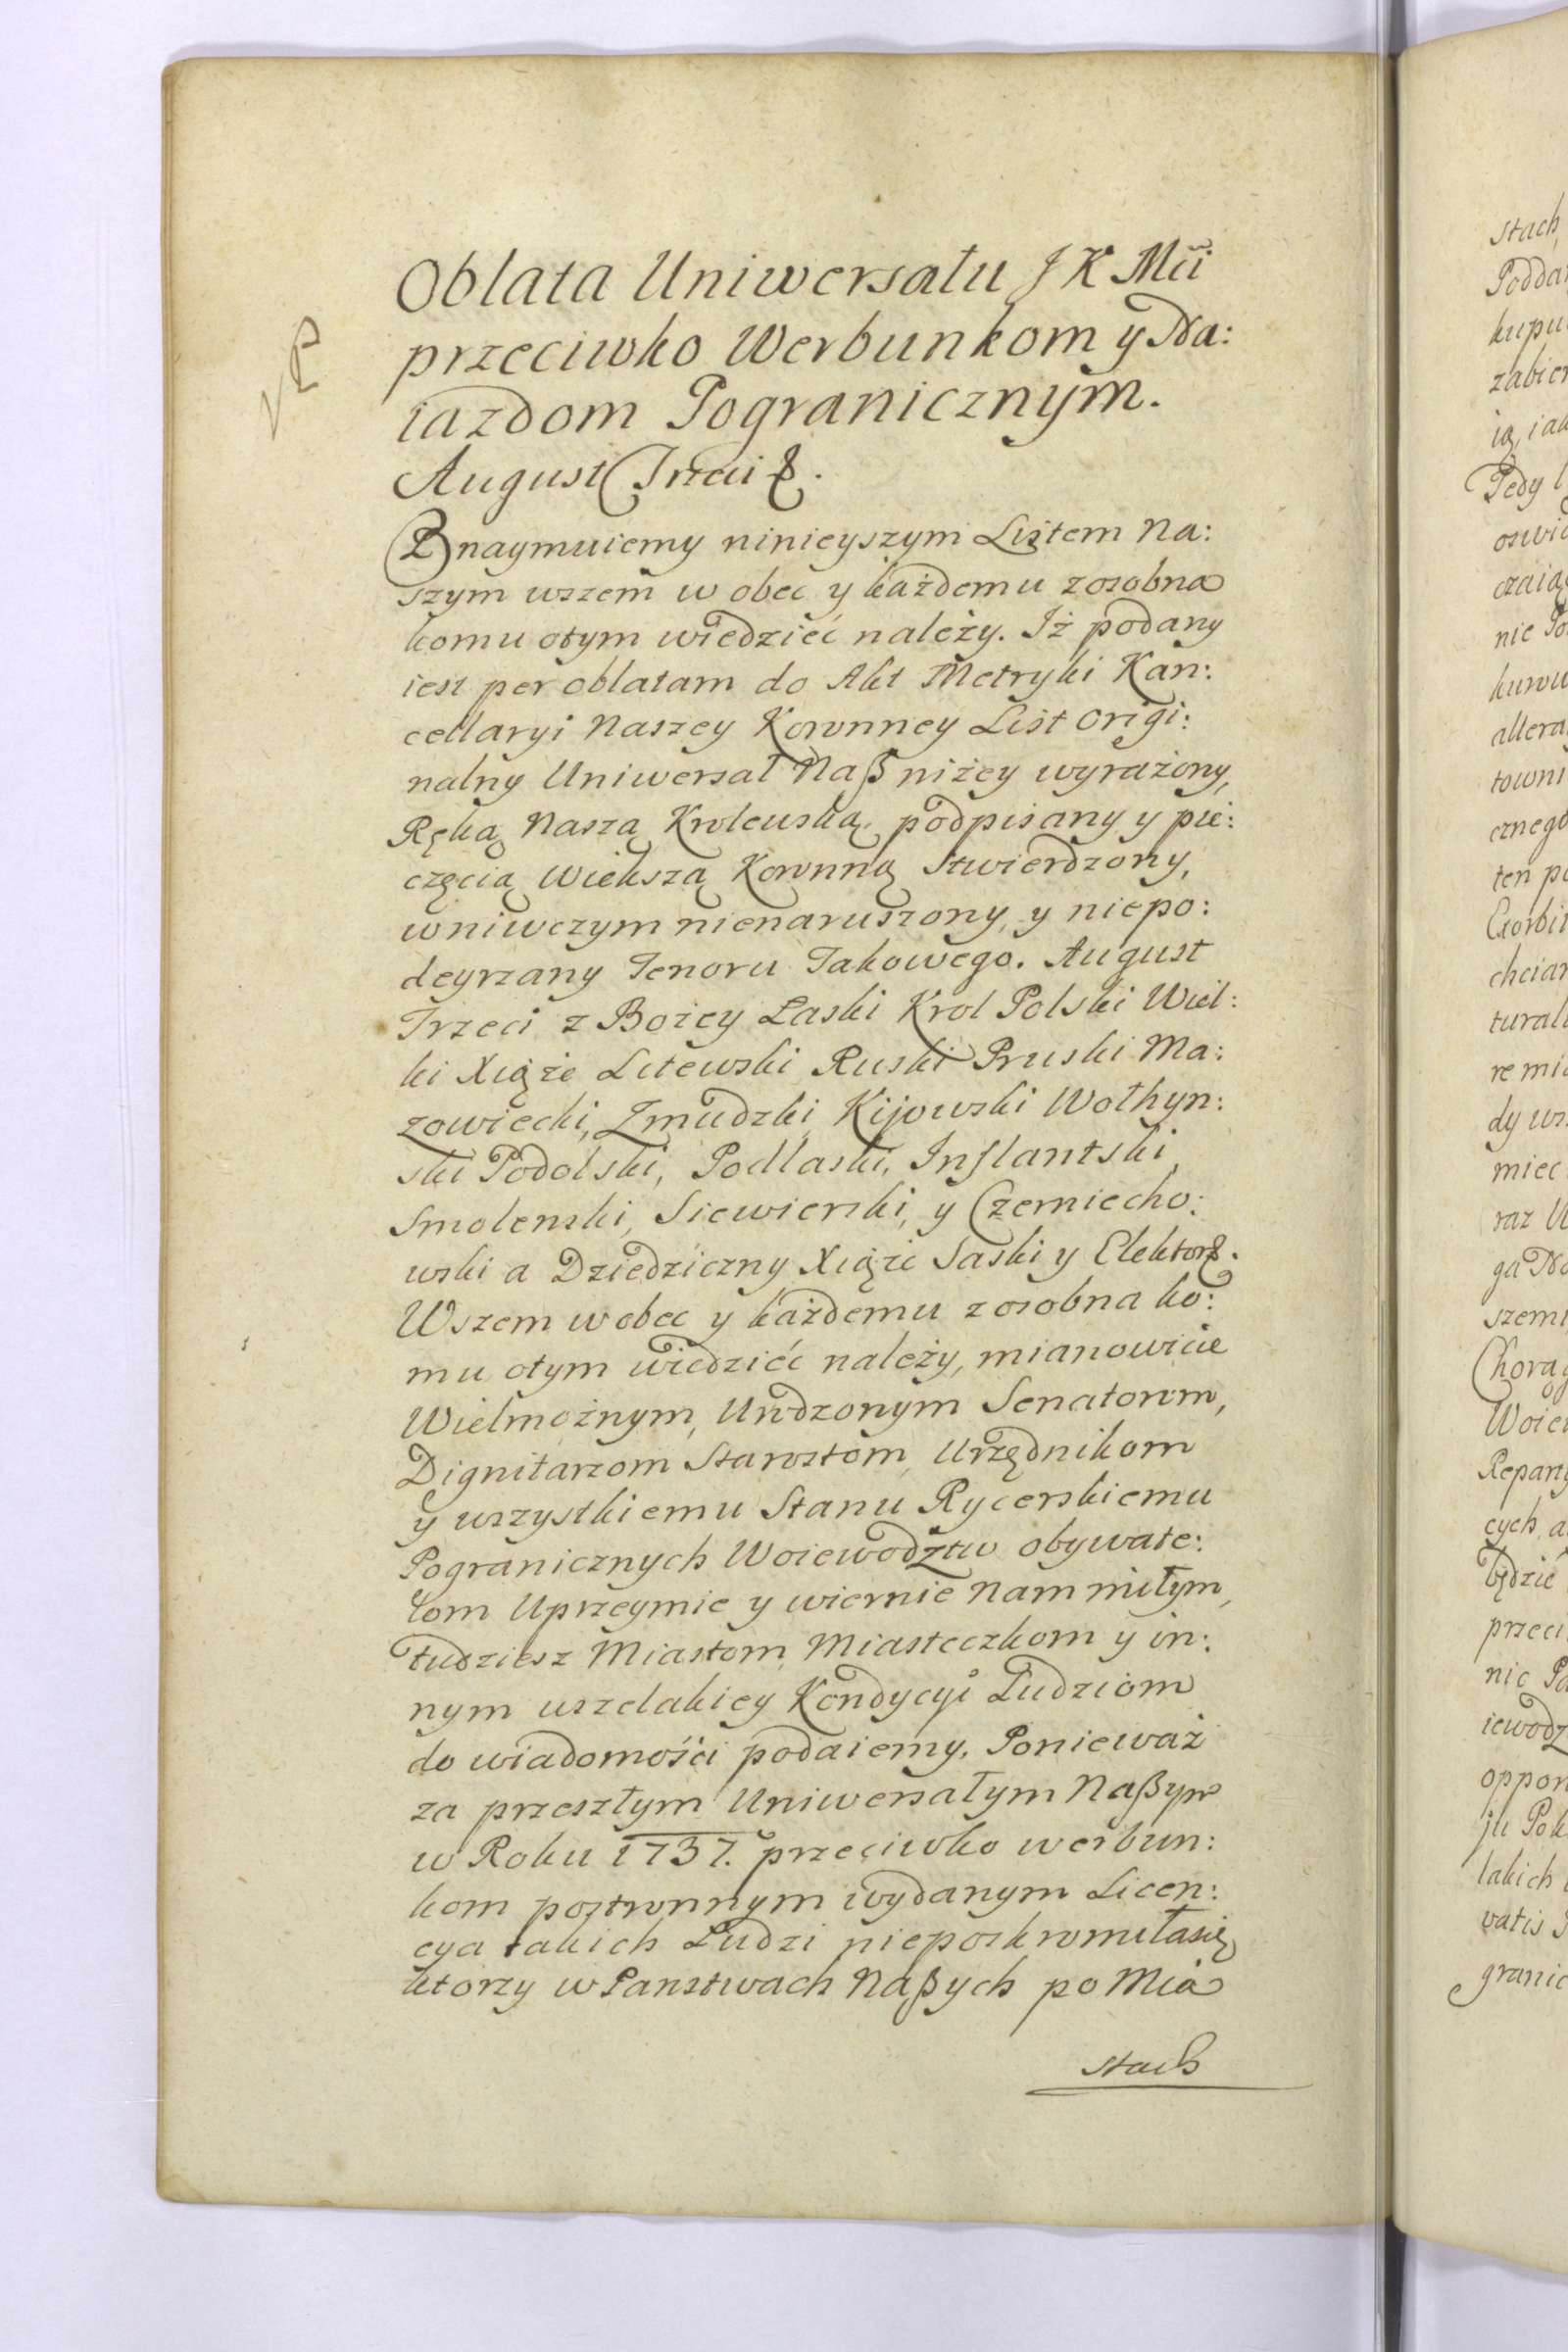 VP
Oblata Uniwersału J K Mći
przeciwko Werbunkom y Na:
iazdom Pogranicznym.
August Trzeci &.
Oznaymuiemy ninieyszym Listem Na:
szym wszem w obec y każdemu zosobna
komu otym wiedzieć należy. Iż podany
iest per oblatam do Akt Metryki Kan:
cellaryi Naszey Koronney List origi:
nalny Uniwersał Naß niżey wyrażony,
Ręką Naszą Krolewską, podpisany y pie:
częcią Wiekszą Koronną Stwierdzony,
wniwczym nienaruszony, y niepo:
deyrzany Tenoru Takowego. August
Trzeci z Bożey Łaski Krol Polski Wiel:
ki Xiąże Litewski Ruski Pruski Ma:
zowiecki, Zmudzki, Kijowski Wołhyn:
ski Podolski, Podlaski, Inflantski,
Smolenski, Siewierski, y Czerniecho:
wski a Dziedziczny Xiąże Saski y Elektor &.
Wszem wobec y każdemu z osobna ko:
mu otym wiedzieć należy, mianowicie
Wielmożnym, Urodzonym Senatorom,
Dignitarzom Starostom, Urzędnikom
y wszystkiemu Stanu Rycerskiemu
Pogranicznych Woiewodztw obywate:
lom Uprzeymie y wiernie Nam miłym,
tudziesz Miastom, Miasteczkom y in:
nym wszelakiey Kondycyi Ludziom
do wiadomości podaiemy. Ponieważ
za przeszłym Uniwersałym Naßym
w Roku 1737. przeciwko werbun:
kom postronnym wydanym Licen:
cya takich Ludzi nieposkromiłasię
ktorzy w Panstwach Naßych po Mia
stach
stach
Podda
kupu
zabier
ią, iak
Tedy
oswi
czaią
nie Po
kurou
altera
towni
cznego
ten po
Exorbi
chcia
tural
re mi
dy ws
miec
raz U
ga No
szemi
Chorą
Woie
Repart
cych, a
będzie
przeci
nic Pa
iewodz
oppon
ju Pok
lakich
vatis
granic